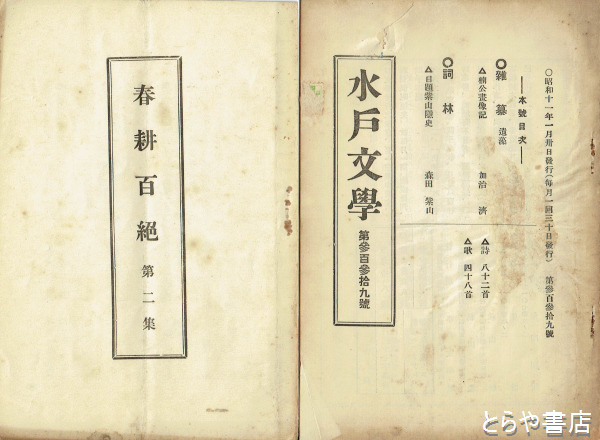 〇昭和十一年一月卅日發行(每月一回三十日發行) 第參百參拾九號
――本號目次――
〇雜纂 遺藻
△楠公畫像記 加治 濟
〇詞林
△自題紫山隱史 森田 紫山
△詩 八十二首
△歌 四十八首
水戶文學 第參百參拾九號
春耕百絕 第二集
とらや書店